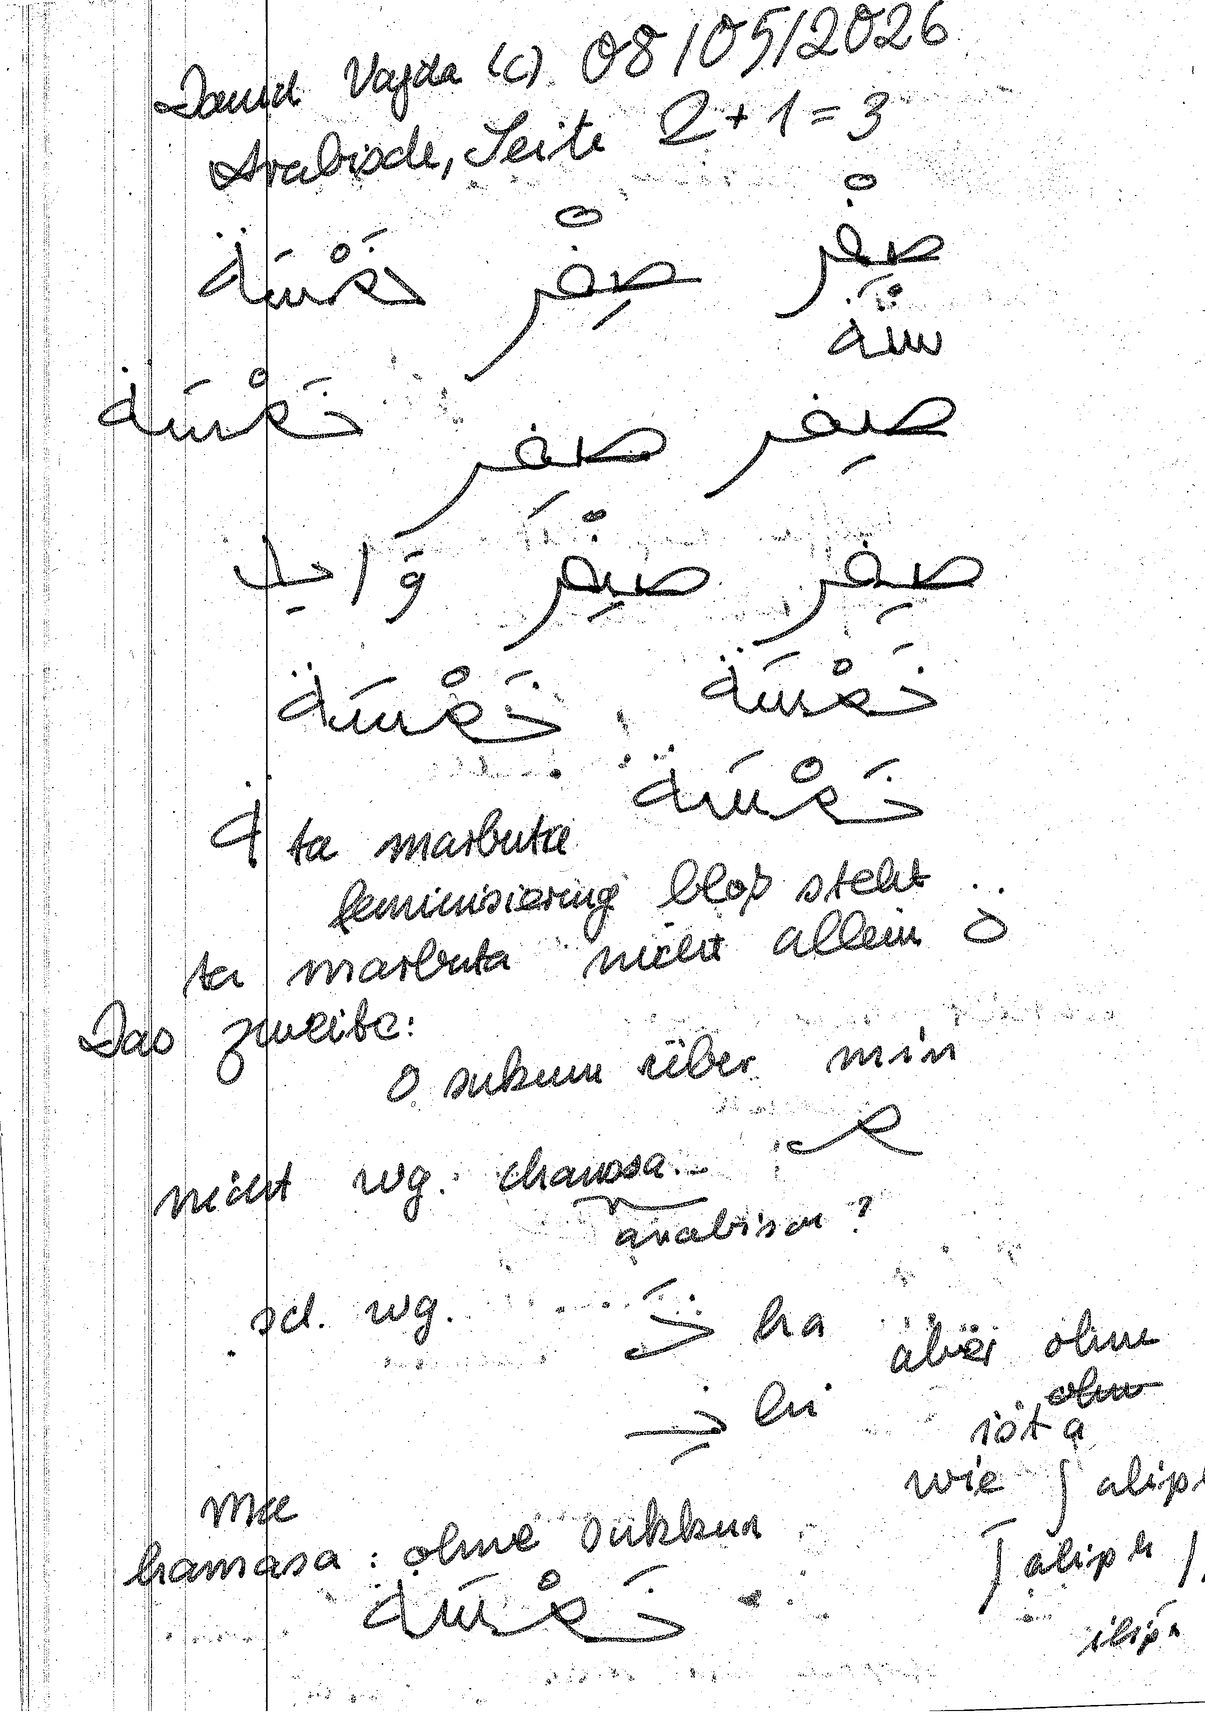 David Vajda (C) 08/05/2026
Arabische, Seite 2+1=3
صِفْر صِفْر خَمْسَة
ستة
صِفر صفِر خَمْسَة
صِفر صِفْر وَا
خَمْسَة خَمْسَة
خَمْسَة
ة ta marbuta
feminisierung bloß steht
ta marbuta nicht allein ة
Das zweite:
o sukun über mim
nicht wg. chamsa م
arabisch?
sd. wg. خَ ha aber ohne
خِ hi iota
wie aliph
Mae
hamasa: ohne sukkun aliph
خَمْسَة